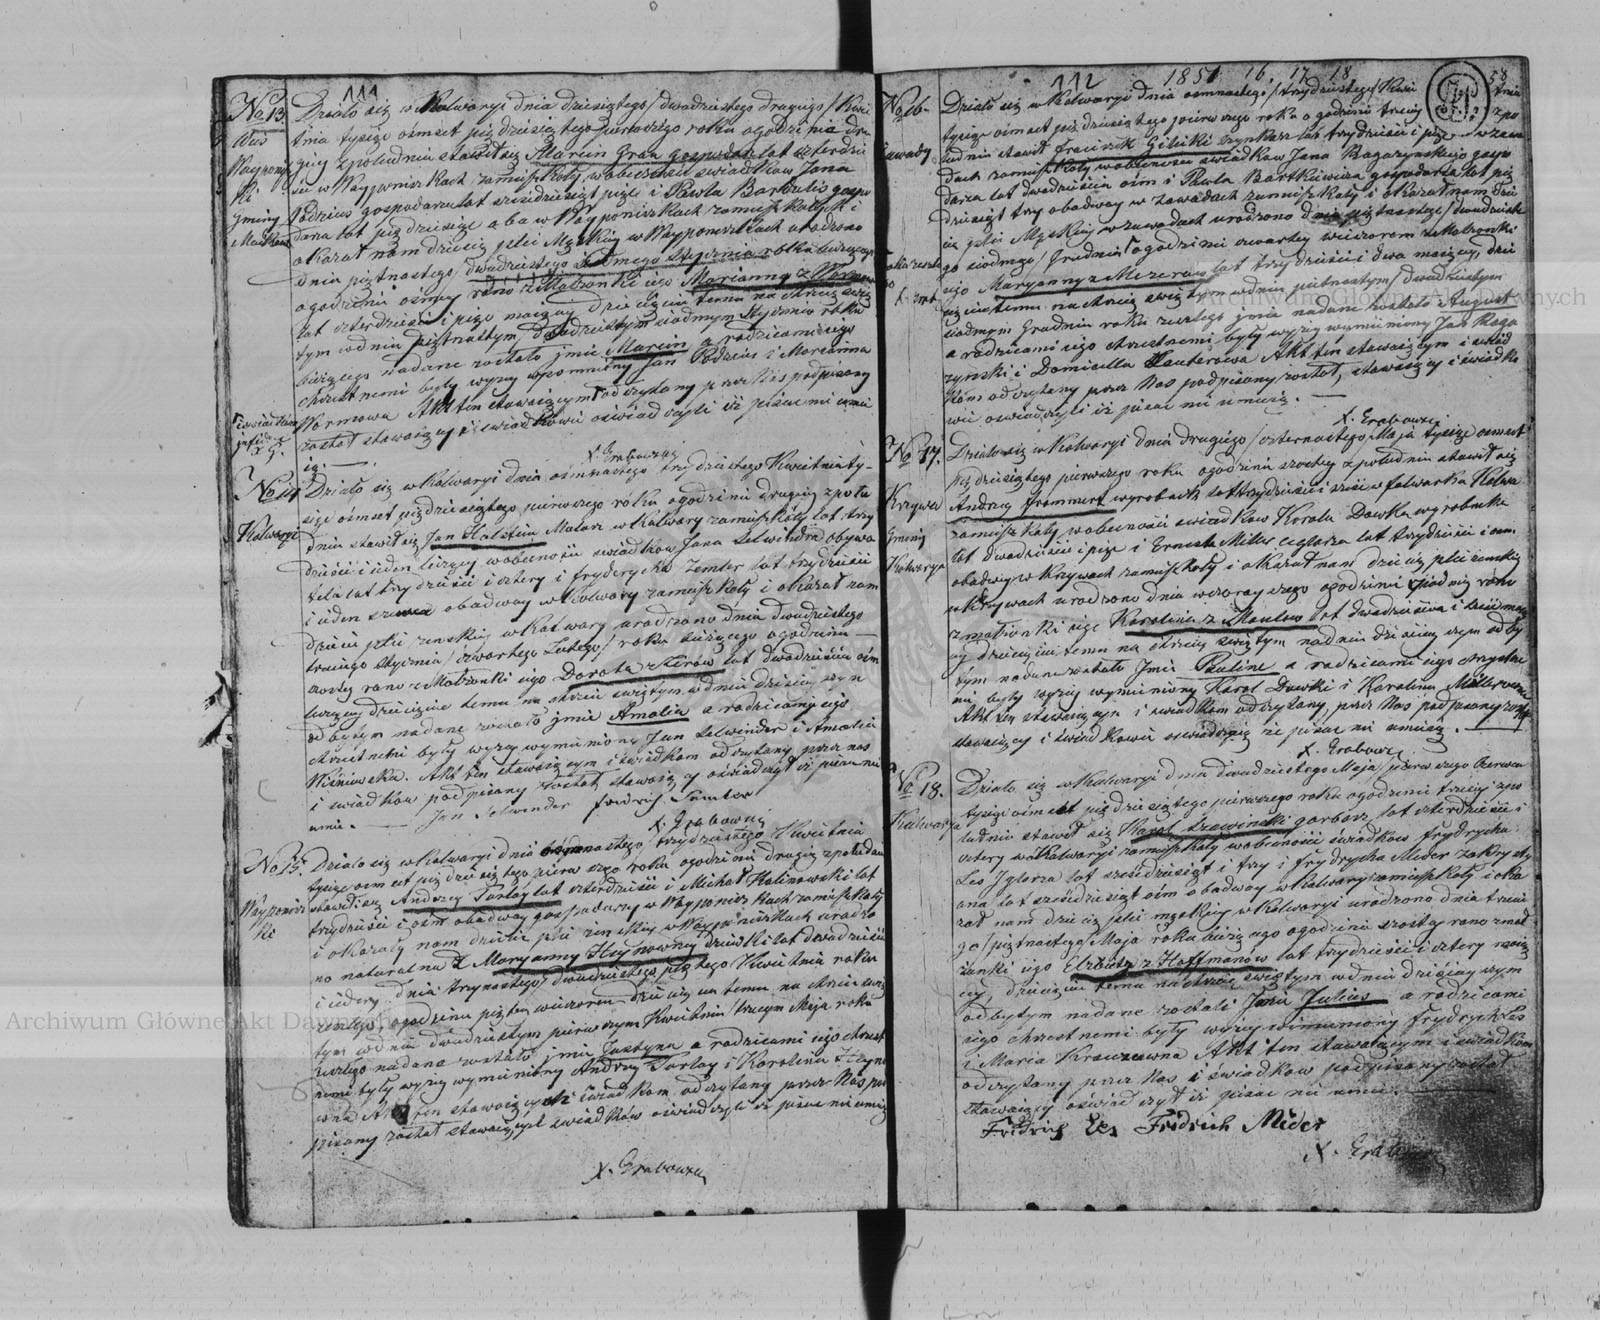 111
No 13.
Wieś
Waypony-
ki
Gminy
Działo się w Kalwaryi dnia dziesiątego / dwudziestego drugiego / Kwie
tnia tysiąc ośmset pięćdziesiątego pierwszego roku o godzinie dru
giey z południa stawił się Marcin Gran gospodarz lat czterdzie
ści w Wayponiszkach zamieszkały, w obecności świadków Jana
Podzius gospodarza lat sześćdziesiąt pięć i Pawła Barkulis gospo
darza lat pięćdziesiąt oba w Wayponiszkach zamieszkałych i
okazał nam dziecię płci Męzkiey w Wayponiszkach urodzone
dnia piętnastego / dwudziestego siódmego Stycznia roku bieżącego
o godzinie ósmey rano z Małżonki iego Marianny z
lat czterdzieści i pięć maiącey dziecięciu temu na chrzcie świę
tym w dniu piętnastym / dwudziestym siódmym Stycznia roku
bieżącego nadane zostało imie Marcin a rodzicami iego
chrzestnemi byli wyżey wspomniony Jan Podzius i Marianna
Wormowa Akt ten stawaiącym odczytany przez Nas podpisany
został stawaiący i świadkowie oświadczyli iż pisać nie umie
ią. —
X. Grabowski
No 14
Kalwarya
Działo się w Kalwaryi dnia ośmnastego / trzydziestego Kwietnia ty-
siąc ośmset pięćdziesiątego pierwszego roku o godzinie drugiey z połu
dnia stawił się Jan Halstein Malarz w Kalwaryi zamieszkały lat trzy
dzieści i ieden liczący w obecności świadków Jana Selwindra obywa
tela lat trzydzieści i cztery i Fryderyka Zemler lat trzydzieści
i ieden szewca obadway w Kalwaryi zamieszkały i okazał nam
dziecię płci żeńskiey w Kalwaryi urodzone dnia dwudziestego
trzeciego Stycznia / czwartego Lutego / roku bieżącego o godzinie
szóstey rano z Małżonki iego Dorota z Kirów lat dwadzieścia ośm
liczącey dziecięciu temu na chrzcie świętym w dniu dzisieyszym
odbytym nadane zostało imie Amalia a rodzicami iego
chrzestnemi byli wyżey wymieniony Jan Selwinder i Amalia
Wiśniewska. Akt ten stawaiącym i świadkom odczytany przez nas
i świadków podpisany został stawaiący oświadczył iż pisać nie
umie. — Jan Selwinder Fridrich Semler
X. Grabowski
No 15.
Wayponisz
ki
Działo się w Kalwaryi dnia ośmnastego / trzydziestego Kwietnia
tysiąc ośmset pięćdziesiątego pierwszego roku o godzinie drugiey z południa
stawili się Andrzey Turłoy lat czterdzieści i Michał Kalinowski lat
trzydzieści i ośm obadway gospodarzy w Wayponiszkach zamieszkały
i okazały nam dziecie płci żeńskiey w Wayponiszkach urodzo
no naturalna z Maryanny dziewki lat dwadzieścia
i ieden dnia trzynastego / dwudziestego piątego Kwietnia roku
o godzinie piątey wieczorem dziecięciu temu na chrzcie świę
tym w dniu dwudziestym pierwszym Kwietnia / trzecim Maja roku
nadane zostało imie Justyna a rodzicami iego chrzest
nemi byli wyżey wymieniony Andrzey Turłoy i Karolina
Akt ten stawaiącym i świadkom odczytany przez Nas pod
pisany został stawaiący i świadków oświadczyli iż pisać nie umieią
X. Grabowski
112
1851 16. 17 18
58
No 16-
Zawady
Działo się w Kalwaryi dnia ośmnastego / trzydziestego / Kwie
tnia
tysiąc ośmset pięćdziesiątego pierwszego roku o godzinie trzeciey
z po
łudnia stawił Franciszek Gibicki lat trzydzieści i pięć w zawa
dach zamieszkały w obecności świadków Jana Rogazynskiego gospo
darza lat dwadzieścia ośm i Pawła Bartkiewicza gospodarza lat pię
dziesiąt trzy obadway w Zawadach zamieszkały i okazał nam dzie
cię płci Męskiey w zawadach urodzono dnia piętnastego / dwudzieste
go siódmego / Grudnia o godzinie czwartey wieczorem z Małżonki
iego Maryanny z Mezerow lat trzydzieści i dwa maiącey, dzie
cięciu temu na chrzcie świętym w dniu piętnastym / dwudziestym
siódmym Grudnia roku zeszłego imie nadane zostało August
a rodzicami iego chrzestnemi byli wyżey wymieniony Jan Roga
zynski i Domicella Akt ten stawaiącym i świad
kom odczytany przez Nas podpisany został, stawaiący i świadko
wie oświadczyli iż pisać nie umieią. —
X. Grabowski
No 17.
Krzywa
Gminy
Kalwarya
Działo się w Kalwaryi dnia drugiego / czternastego Maja tysiąc ośmset
pięćdziesiątego pierwszego roku o godzinie szóstey z południa stawił się
Andrzey Frommert wyrobnik lat trzydzieści i sześć w folwarku
zamieszkały w obecności świadków Karola Dawka wyrobnika
lat dwadzieścia i pięć i Ernesta Miller ceglarza lat trzydzieści i ośm
obadway w Krzywach zamieszkały i okazał nam dziecię płci żenskiey
w Krzywach urodzono dnia wczorayszego o godzinie piątey rano
z małżonki iego Karolina z lat dwadzieścia i sześć maią
cy dziecięciu temu na chrzcie świętym na dniu dzisieyszym odby
tym nadane zostało Jmie Paulina a rodzicami iego chrzestne
mi byli wyżey wymieniony Karol Dawki i Karolina Millerowna
Akt ten stawaiącym i świadkom odczytany przez Nas podpisany został
stawaiący i świadkowie oświadczyli iż pisać nie umieią. —
X. Grabowski
No 18.
Kalwarya
Działo się w Kalwaryi dnia dwudziestego Maja / pierwszego Czerwca
tysiąc ośmset pięćdziesiątego pierwszego roku o godzinie trzeciey z po
łudnia stawił się Karol Szawinski garbarz lat czterdzieści i
cztery w Kalwaryi zamieszkały w obecności świadków Frydrycha
Les Jglarza lat sześćdziesiąt i trzy i Frydrycha Meder zakrysty
ana lat sześćdziesiąt ośm obadway w Kalwaryi zamieszkały i oka
zał nam dziecię płci męzkiey w Kalwaryi urodzono dnia trzecie
go / piętnastego / Maja roku bieżącego o godzinie szóstey rano z mał
żonki iego Elżbiety z Hoffmanów lat trzydzieści i cztery maią
cey, dziecięciu temu na chrzcie świętym w dniu dzisieyszym
odbytym nadane zostali Jana Julius a rodzicami
iego chrzestnemi byli wyżey wymieniony Frydrych Les
i Maria Akt ten stawaiącym i świadkom
odczytany przez Nas i świadków podpisany został
stawaiący oświadczył iż pisać nie umie. —
Fridrich Les Fridrich Meder
X. Grabowski
Archiwum Główne Akt Dawnych
Archiwum Główne Akt Dawnych